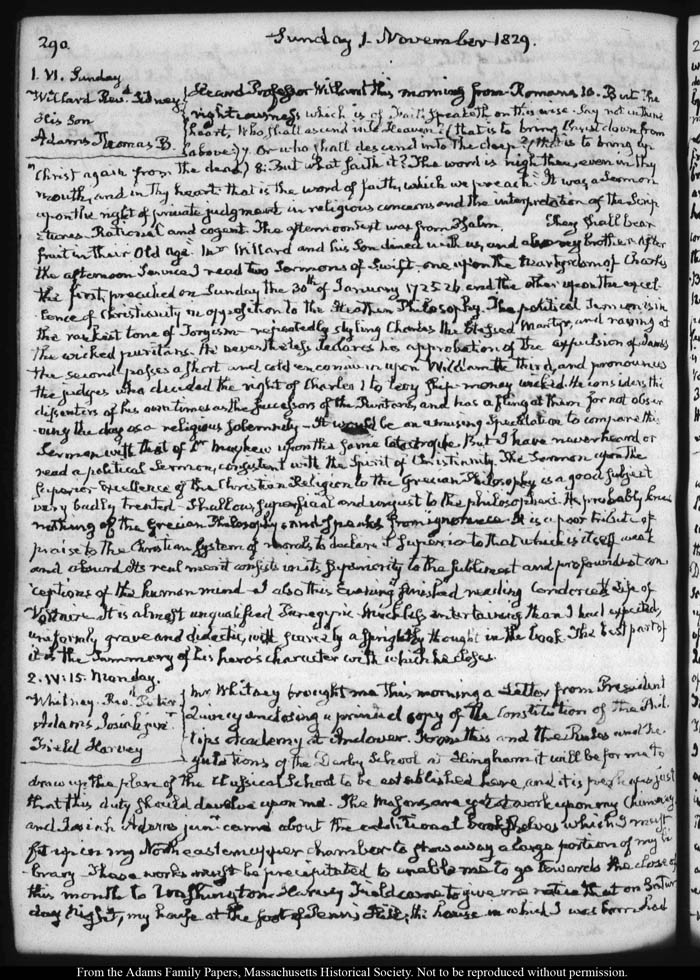 290.
Sunday 1. November 1829.
1. VI. Sunday
Willard Rev.d Sidney
His Son
Adams Thomas B.
Heard Professor Willard this morning from Romans 10. But the
righteousness which is of Faith speaketh on this wise. Say not in thine
heart, Who shall ascend into Heaven? (that is to bring Christ down from
above:) 7. Or who shall descend into the deep? (that is to bring up
Christ again from the dead) 8: But what saith it? The word is nigh thee, even in thy
mouth, and in thy heart: that is the word of faith, which we preach. It was a Sermon
upon the right of private judgment in religious concerns and the interpretation of the Scrip
tures. Rational and cogent. The afternoon text was from Psalm. They shall bear
fruit in their Old age. Mr Willard and his Son dined with us, and also my brother. After
the afternoon Service I read two Sermons of Swift, one upon the Martyrdom of Charles
the first, preached on Sunday the 30th of January 1725-26 and the other upon the excel-
lence of Christianity in opposition to the Heathen Philosophy. The political Sermon is in
the rankest tone of Toryism—repeatedly styling Charles the blessed Martyr, and raving at
the wicked puritans. He nevertheless declares his approbation of the expulsion of James
the second, passes a short and cold encomium upon William the third, and pronounces
the judges who decided the right of Charles 1 to levy Ship-money wicked. He considers the
dissenters of his own times as the successors of the Puritans, and has a fling at them for not obser
ving the day as a religious solemnity—It would be an amusing speculation to compare this
Sermon with that of Dr Mayhew upon the same catastrophe. But I have never heard or
read a political Sermon, consistent with the Spirit of Christianity. The Sermon upon the
Superior Excellence of the Christian Religion to the Grecian Philosophy is a good subject
very badly treated—Shallow, superficial and unjust to the philosophers. He probably knew
nothing of the Grecian Philosophy, and speaks from ignorance. It is a poor tribute of
praise to the Christian System of morals, to declare it superior to that which is itself weak
and absurd. Its real merit consists in its superiority to the sublimest and profoundest con
ceptions of the human mind—I also this Evening finished reading Condorcet's Life of
Voltaire. It is almost unqualified Panegyric. Much less entertaining than I had expected,
uniformly grave and didactic, with scarcely a sprightly thought in the book. The best part of
it is the Summary of his hero's character with which he closes.
2. IV:15. Monday.
Whitney. Rev.d Peter
Adams, Josiah junr
Field Harvey
Mr Whitney brought me this morning a Letter from President
Quincy enclosing a printed copy of the Constitution of the Phil-
lips Academy at Andover. From this and the Rules and Re-
gulations of the Derby School at Hingham it will be for me to
draw up the plan of the Classical School to be established here, and it is perhaps just
that this duty should devolve upon me. The Masons are yet at work upon my Chimneys
and Josiah Adams junr came about the additional bookshelves which I must
fit up in my North east upper chamber to stow away a large portion of my li
brary—These works must be precipitated to enable me to go towards the close of
this month to Washington. Harvey Field came to give me notice that on Satur
day Night, my house at the foot of Penn's Hill; the house in which I was born had
From the Adams Family Papers, Massachusetts Historical Society. Not to be reproduced without permission.